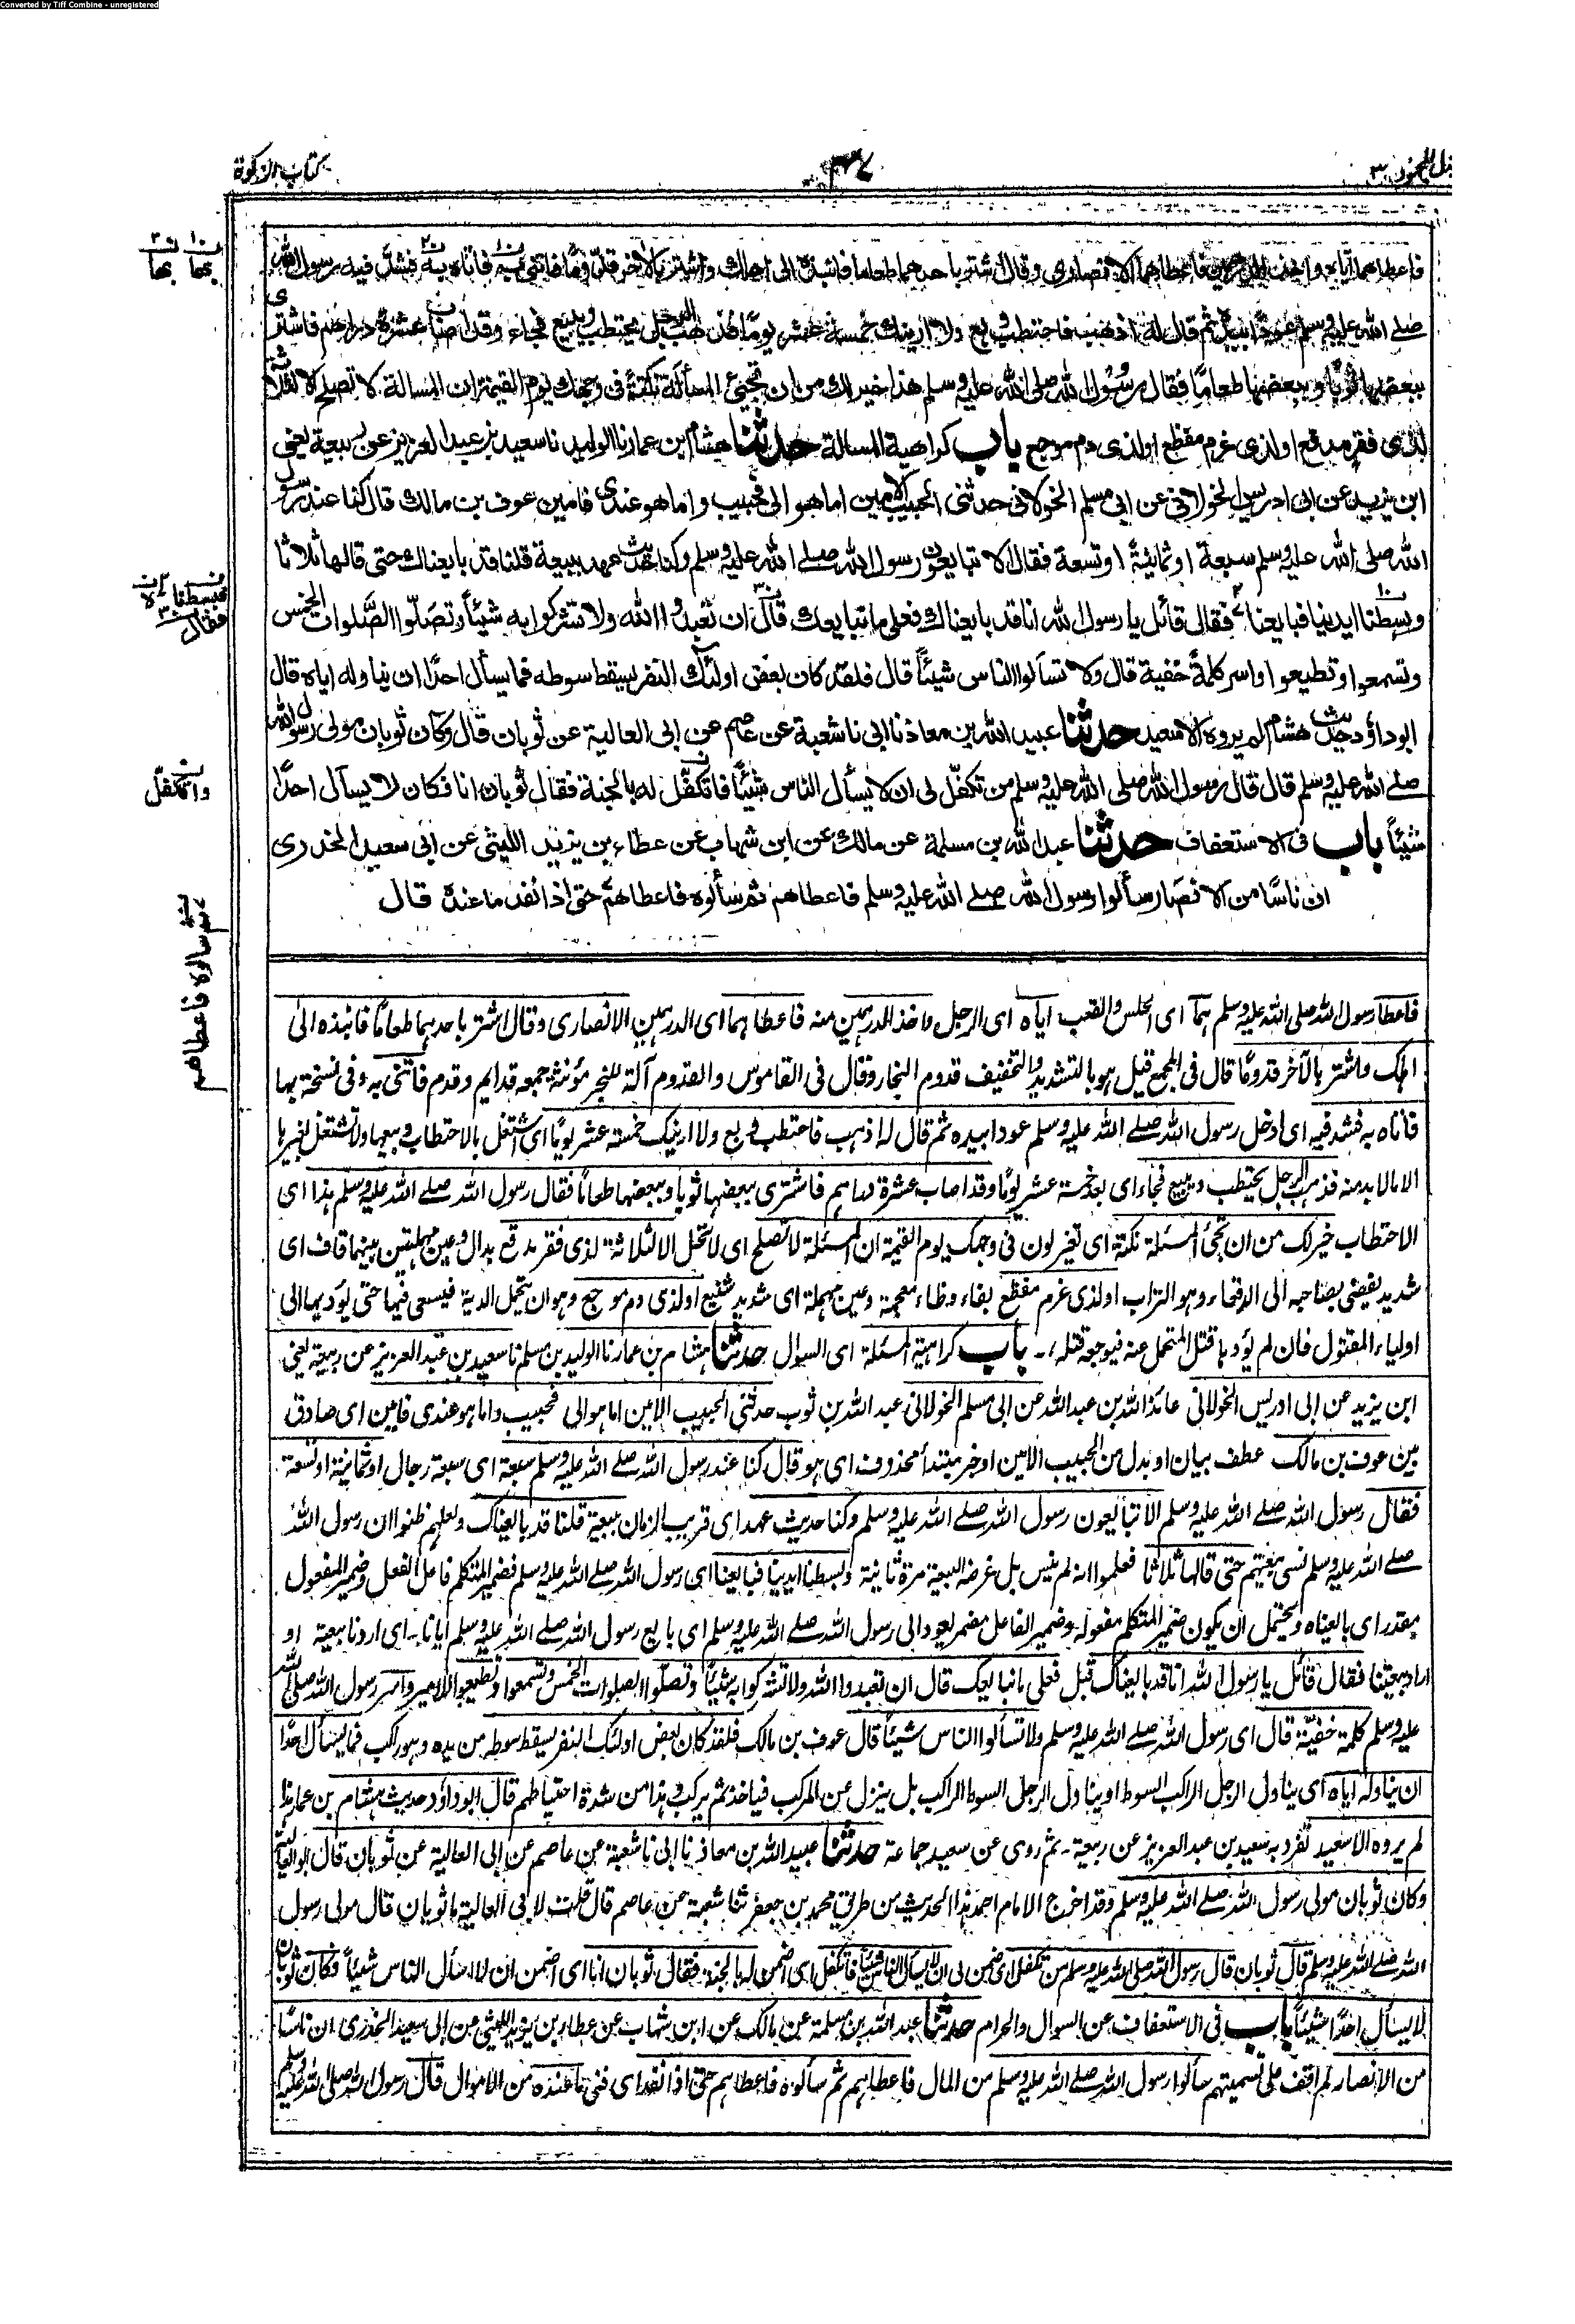 Converted by Tiff Combine - unregistered
كتاب الزكوة
فاعطاهما اياه واخذ الدرهمين فاعطاهما الانصارى وقال اشتر باحدهما طعاما فانبذه الى اهلك واشتر بالاخر قدوما فاتنى به فاتاه به فشد فيه رسول الله
صلى الله عليه وسلم عودا بيده ثم قال له اذهب فاحتطب وبع ولا ارينك خمسة عشر يوما فذهب الرجل يحتطب ويبيع فجاء وقد اصاب عشرة دراهم فاشترى
ببعضها ثوبا وببعضها طعاما فقال رسول الله صلى الله عليه وسلم هذا خير لك من ان تجيئ المسألة نكتة فى وجهك يوم القيمة ان المسالة لا تصلح الا لثلاثة
لذى فقر مدقع او لذى غرم مفظع او لذى دم موجع باب كراهية المسالة حدثنا هشام ابن عمار نا الوليد نا سعيد بن عبد العزيز عن ربيعة يعنى
ابن يزيد عن ابى ادريس الخولانى عن ابى مسلم الخولانى حدثنى الحبيب الامين اما هو الى فحبيب واما هو عندى فامين عوف بن مالك قال كنا عند رسول
الله صلى الله عليه وسلم سبعة او ثمانية او تسعة فقال الا تبايعون رسول الله صلى الله عليه وسلم وكنا حديث عهد ببيعة قلنا قد بايعناك حتى قالها ثلاثا
وبسطنا ايدينا فبايعنا فقال قائل يا رسول الله انا قد بايعناك فعلى ما نبايعك قال ان تعبدوا الله ولا تشركوا به شيئا وتصلوا الصلوات الخمس
وتسمعوا وتطيعوا واسر كلمة خفية قال ولا تسألوا الناس شيئا قال فلقد كان بعض اولئك النفر يسقط سوطه فما يسأل احدا ان يناوله اياه قال
ابو داؤد حديث هشام لم يروه الا سعيد حدثنا عبيد الله بن معاذ نا ابى نا شعبة عن عاصم عن ابى العالية عن ثوبان قال وكان ثوبان مولى رسول الله
صلى الله عليه وسلم قال قال رسول الله صلى الله عليه وسلم من تكفل لى ان لا يسأل الناس شيئا فاتكفل له بالجنة فقال ثوبان انا فكان لا يسأل احدا
شيئا باب فى الاستعفاف حدثنا عبد الله بن مسلمة عن مالك عن ابن شهاب عن عطاء بن يزيد الليثى عن ابى سعيد الخدرى
ان ناسا من الانصار سألوا رسول الله صلى الله عليه وسلم فاعطاهم ثم سألوه فاعطاهم حتى اذا نفد ما عنده قال
بها بها
فقال
واتكفل
سالوه فاعطاهم
فاعطا رسول الله صلى الله عليه وسلم هما اى الحلس والقعب اياه اى الرجل واخذ الدرهمين منه فاعطاهما اى الدرهمين الانصارى وقال اشتر باحدهما طعاما فانبذه الى
اهلك واشتر بالآخر قدوما قال فى المجمع قيل هو بالتشديد والتخفيف قدوم النجار وقال فى القاموس والقدوم آلة للنجر مؤنثة جمعه قدايم وقدم فاتنى به وفى نسخة بها
فاتاه به فشد فيه اى ادخل رسول الله صلى الله عليه وسلم عودا بيده ثم قال له اذهب فاحتطب وبع ولا ارينك خمسة عشر يوما اى اشتغل بالاحتطاب وبيعها ولا تشتغل بغيرها
الا ما لا بد منه فذهب الرجل يحتطب ويبيع فجاء اى بعد خمسة عشر يوما وقد اصاب عشرة دراهم فاشترى ببعضها ثوبا وببعضها طعاما فقال رسول الله صلى الله عليه وسلم هذا اى
الاحتطاب خير لك من ان تجئ المسئلة نكتة اى تغير لون فى وجهك يوم القيمة ان المسئلة لا تصلح اى لا تحل الا لثلاثة لذى فقر مدقع بدال وعين مهملتين بينهما قاف اى
شديد يفضى بصاحبه الى الدقعاء وهو التراب او لذى غرم مفظع بفاء وظاء معجمة وعين مهملة اى شديد شنيع او لذى دم موجع وهو ان يتحمل الدية فيسعى فيها حتى يؤديها الى
اولياء المقتول فان لم يؤدها قتل المتحمل عنه فيوجعه قتله - باب كراهية المسئلة اى السوال حدثنا هشام بن عمار نا الوليد بن مسلم نا سعيد بن عبد العزيز عن ربيعة يعنى
ابن يزيد عن ابى ادريس الخولانى عائذ الله بن عبد الله عن ابى مسلم الخولانى عبد الله بن ثوب حدثنى الحبيب الامين اما هو الى فحبيب واما هو عندى فامين اى صادق
بين عوف بن مالك عطف بيان او بدل من الحبيب الامين او خبر مبتدأ محذوف اى هو قال كنا عند رسول الله صلى الله عليه وسلم سبعة اى سبعة رجال او ثمانية او تسعة
فقال رسول الله صلى الله عليه وسلم الا تبايعون رسول الله صلى الله عليه وسلم وكنا حديث عهد اى قريب الزمان ببيعة قلنا قد بايعناك ولعلهم ظنوا ان رسول الله
صلى الله عليه وسلم نسى بيعتهم حتى قالها ثلاثا فعلموا انه لم ينس بل غرضه البيعة مرة ثانية وبسطنا ايدينا فبايعنا اى رسول الله صلى الله عليه وسلم فضمير المتكلم فاعل الفعل وضمير المفعول
مقدر اى بايعناه ويحتمل ان يكون ضمير المتكلم مفعوله وضمير الفاعل مضمر يعود الى رسول الله صلى الله عليه وسلم اى بايع رسول الله صلى الله عليه وسلم ايانا - اى اردنا بيعته او
اراد بيعتنا فقال قائل يا رسول الله انا قد بايعناك قبل فعلى ما نبايعك قال ان تعبدوا الله ولا تشركوا به شيئا وتصلوا الصلوات الخمس وتسمعوا وتطيعوا الامير واسر رسول الله صلى الله
عليه وسلم كلمة خفية قال اى رسول الله صلى الله عليه وسلم ولا تسألوا الناس شيئا قال عوف بن مالك فلقد كان بعض اولئك النفر يسقط سوطه من يده وهو راكب فما يسأل احدا
ان يناوله اياه اى يناول الرجل الراكب السوط او يناول الرجل السوط الراكب بل ينزل عن المركب فياخذ ثم يركب وهذا من شدة احتياطهم قال ابو داؤد حديث هشام بن عمار هذا
لم يروه الا سعيد تفرد به سعيد بن عبد العزيز عن ربيعة - ثم روى عن سعيد جماعة حدثنا عبيد الله بن معاذ نا ابى نا شعبة عن عاصم عن ابى العالية عن ثوبان قال ابو العالية
وكان ثوبان مولى رسول الله صلى الله عليه وسلم وقد اخرج الامام احمد هذا الحديث من طريق محمد بن جعفر ثنا شعبة عن عاصم قال قلت لابى العالية ما ثوبان قال مولى رسول
الله صلى الله عليه وسلم قال ثوبان قال رسول الله صلى الله عليه وسلم من تكفل اى ضمن لى ان لا يسأل الناس شيئا فاتكفل اى اضمن له بالجنة فقال ثوبان انا اى اضمن ان لا اسأل الناس شيئا وكان ثوبان
لا يسأل احدا شيئا باب فى الاستعفاف عن السوال والحرام حدثنا عبد الله بن مسلمة عن مالك عن ابن شهاب عن عطاء بن يزيد الليثى عن ابى سعيد الخدرى ان ناسا
من الانصار لم اقف على تسميتهم سألوا رسول الله صلى الله عليه وسلم من المال فاعطاهم ثم سألوه فاعطاهم حتى اذا نفد اى فنى ما عنده من الاموال قال رسول الله صلى الله عليه وسلم